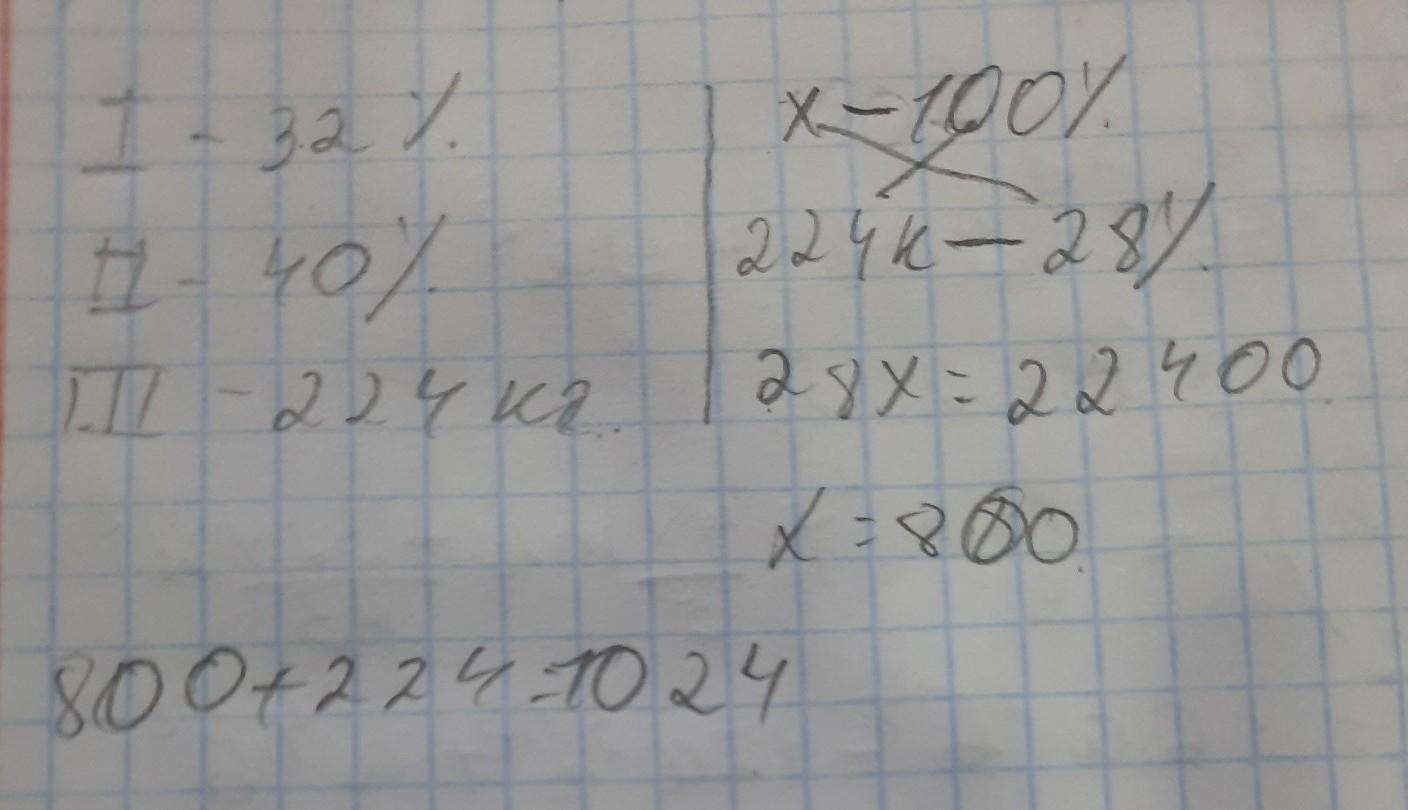 I - 32%.
II - 40%.
III - 224 кг.
x - 100%.
224к - 28%.
28x = 22400.
x = 800.
800 + 224 = 1024